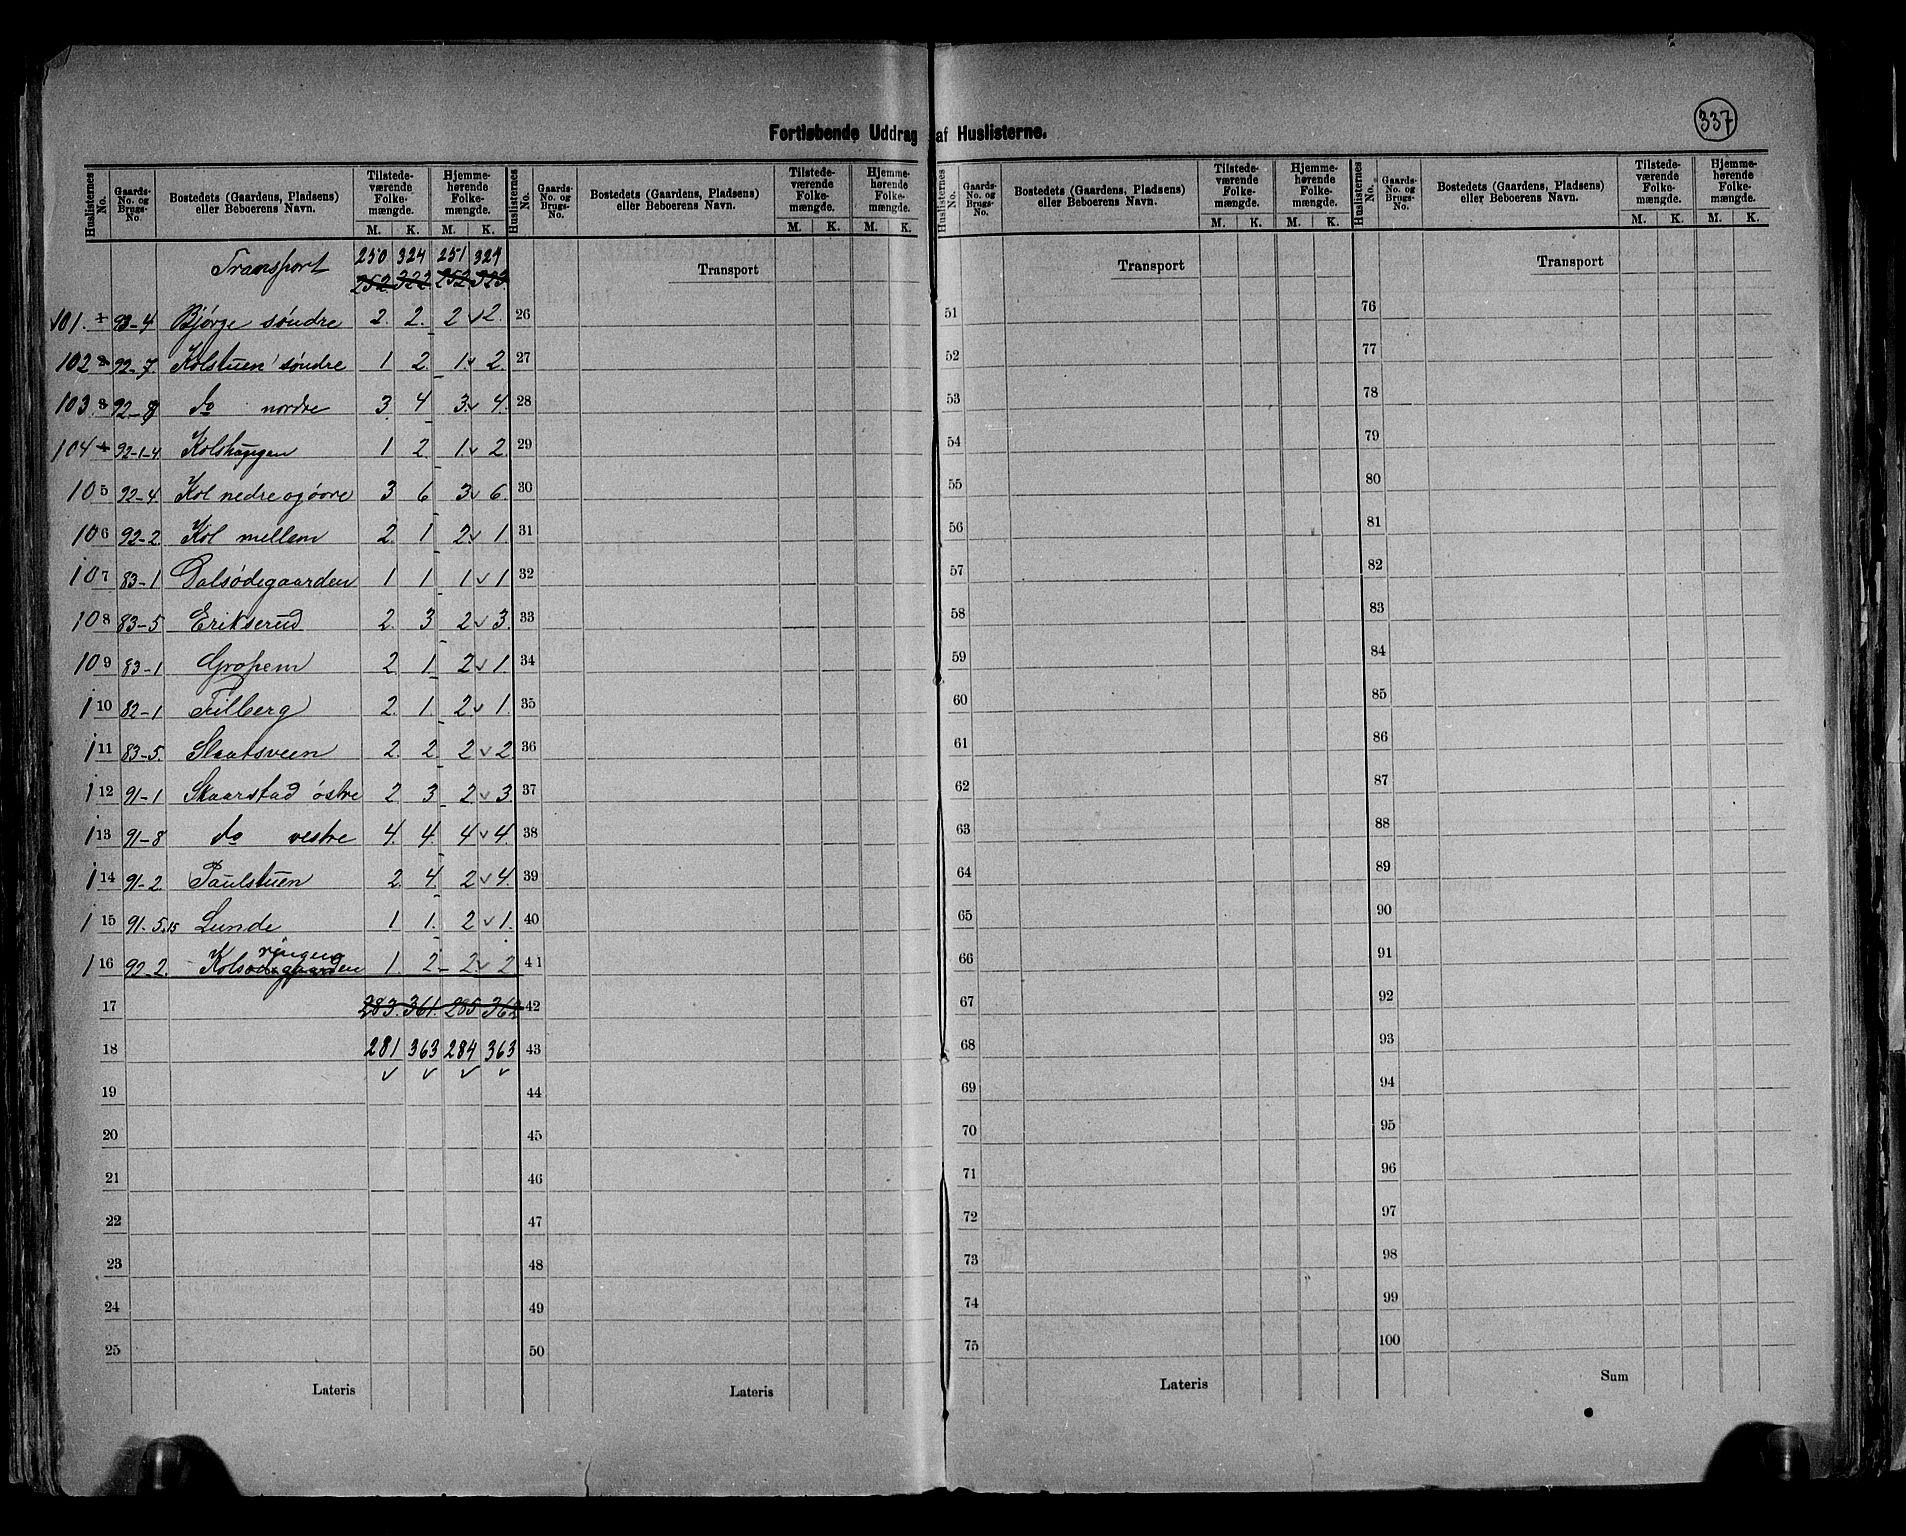 337
Fortløbende Uddrag af Huslisterne.
Huslisternes No. Gaards-No. og Brugs-No. Bostedets (Gaardens, Pladsens) eller Beboerens Navn. Tilstedeværende Folkemængde. M. K. Hjemmehørende Folkemængde. M. K.
Huslisternes No. Gaards-No. og Brugs-No. Bostedets (Gaardens, Pladsens) eller Beboerens Navn. Tilstedeværende Folkemængde. M. K. Hjemmehørende Folkemængde. M. K.
Huslisternes No. Gaards-No. og Brugs-No. Bostedets (Gaardens, Pladsens) eller Beboerens Navn. Tilstedeværende Folkemængde. M. K. Hjemmehørende Folkemængde. M. K.
Huslisternes No. Gaards-No. og Brugs-No. Bostedets (Gaardens, Pladsens) eller Beboerens Navn. Tilstedeværende Folkemængde. M. K. Hjemmehørende Folkemængde. M. K.
Transport 250 324 251 324
252 322 252 323
101. 93-4 Bjørge søndre 2. 2. 2 2.
102 92-7. Kolstuen søndre 1 2. 1 2.
103. 92-8 do nordre 3 4 3. 4.
104 92-1-4 Kolshaugen 1 2 1 2.
105 92-4. Kol nedre og övre 3 6 3. 6.
106 92-2. Kol mellem 2. 1 2. 1.
107 83-1 Dalsødegaarden 1 1 1 1
108 83-5 Erikserud 2. 3 2 3.
109 83-1 Gropem 2 1. 2 1.
110 82-1 Filberg 2. 1. 2. 1.
111 83-5. Slaatsveen 2. 2 2 2
112 91-1 Skaarstad östre 2 3. 2. 3.
113 91-8 do vestre 4. 4. 4 4.
114 91-2. Paulstuen 2. 4. 2 4.
115 91-5.15 Lunde 1 1. 2 1.
116 92-2. Kolsødegaarden 1. 2 2. 2
17 283. 361. 285 362
18 281 363 284 363
19
20
21
22
23
24
25
Lateris
Transport
26
27
28
29
30
31
32
33
34
35
36
37
38
39
40
41
42
43
44
45
46
47
48
49
50
Lateris
Transport
51
52
53
54
55
56
57
58
59
60
61
62
63
64
65
66
67
68
69
70
71
72
73
74
75
Lateris
Transport
76
77
78
79
80
81
82
83
84
85
86
87
88
89
90
91
92
93
94
95
96
97
98
99
100
Sum